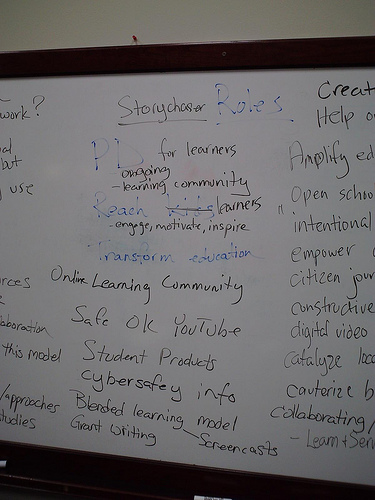 work?
but
use
this model
/approaches
Storychaser Roles
PD for learners
ongoing
- learning community
Reach kids learners
- engage, motivate, inspire
Transform education
Online Learning Community
Safe OK YouTube
Student Products
cybersafey info
Blended learning model
Grant Writing - Screencasts
Creat
Help o
Amplify ed
" Open schoo
intentional
empower
citizen jour
constructive
digital video
catalyze loc
cauterize b
collaborating/
- Learn + Serv